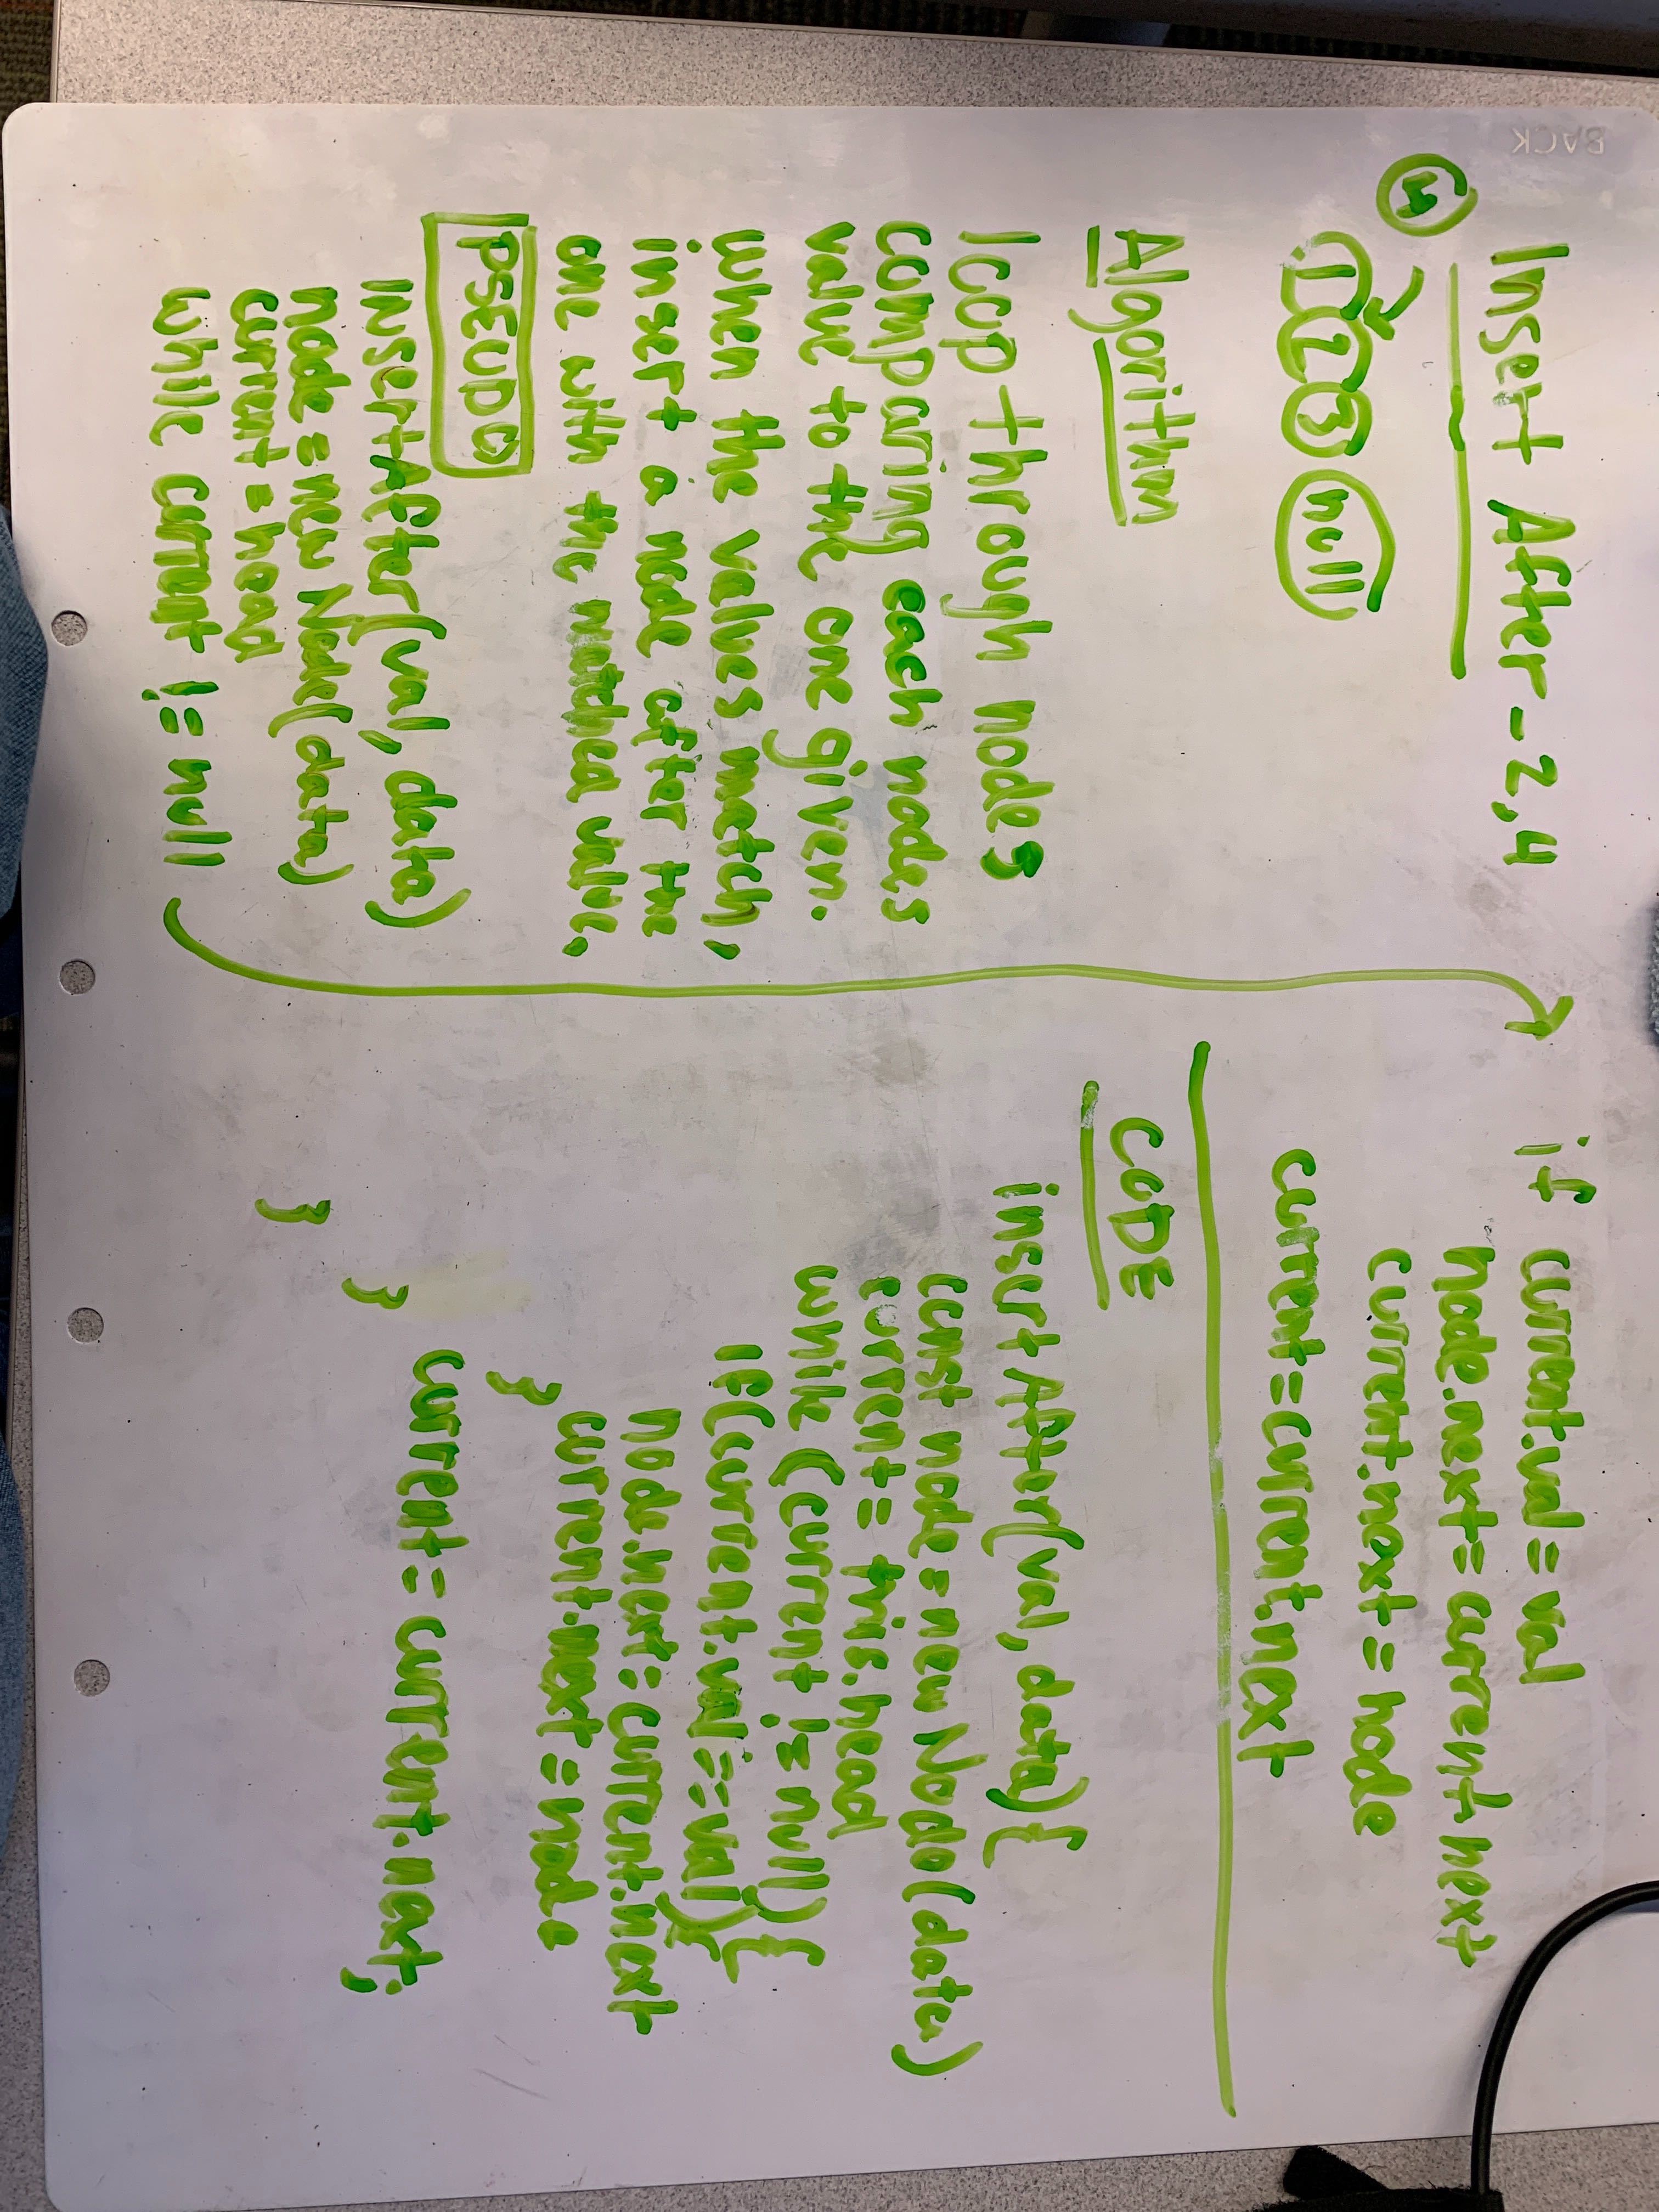 BACK
Insert After - 2,4
4
1 2 3 null
Algorithm
loop through nodes
comparing each nodes
value to the one given.
when the values match,
insert a node after the
one with the matched value.
PSEUDO
insertAfter(val, data)
node = new Node(data)
current = head
while current != null
if current.val = val
node.next = current.next
current.next = node
current = current.next
CODE
insertAfter(val, data){
const node = new Node(data)
current = this.head
while (current != null){
if(current.val == val){
node.next = current.next
current.next = node
}
current = current.next;
}
}